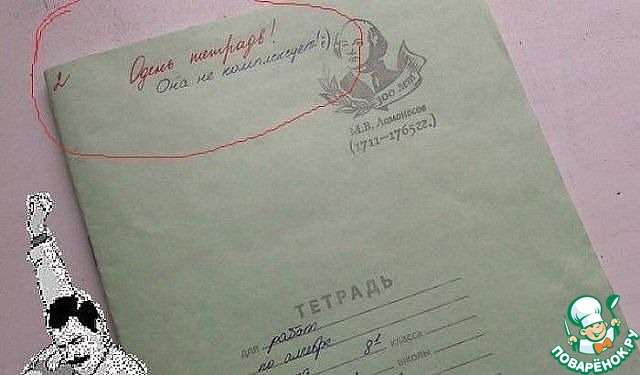 2 Одень тетрадь!
Она не комплексует! :)
300 лет
М.В. Ломоносов
(1711–1765гг.)
ТЕТРАДЬ
для работ
по алгебре
8² класса
школы
ПОВАРЁНОК.РУ